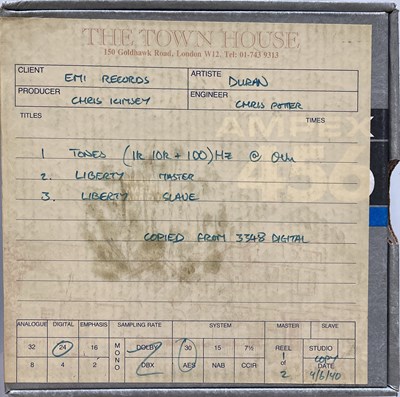 THE TOWN HOUSE
150 Goldhawk Road, London W12. Tel: 01-743 9313
CLIENT EMI RECORDS ARTISTE DURAN
PRODUCER CHRIS KIMSEY ENGINEER CHRIS POTTER
TITLES TIMES
AMPEX
1 TONES (1K 10K + 100) HZ @ 0VU
2. LIBERTY MASTER
3. LIBERTY SLAVE
COPIED FROM 3348 DIGITAL
ANALOGUE DIGITAL EMPHASIS SAMPLING RATE SYSTEM MASTER SLAVE
32 24 16 MONO DOLBY 30 15 7½ REEL STUDIO
8 4 2 DBX AES NAB CCIR 1 of 2 COPY DATE
4/6/90